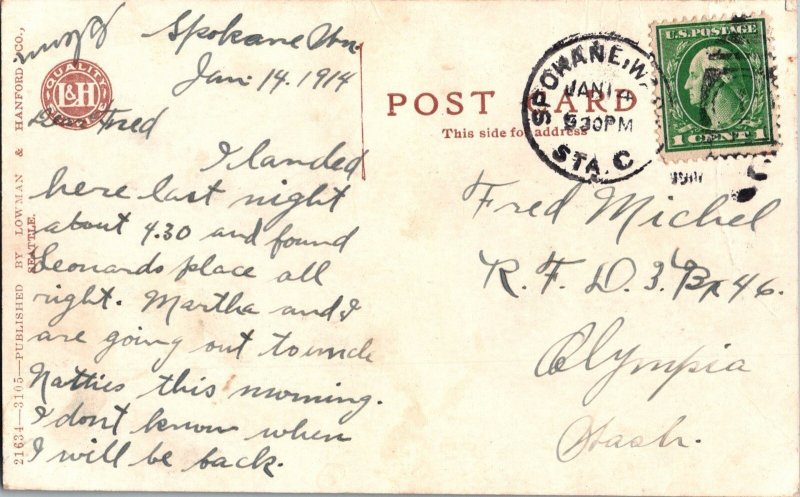 Spokane Wn.
Jan. 14. 1914
Dear Fred
I landed
here last night
about 4.30 and found
Leonards place all
right. Martha and I
are going out to uncle
Natties this morning.
I dont know when
I will be back.
QUALITY
L&H
21634—3105—PUBLISHED BY LOWMAN & HANFORD CO.,
SEATTLE.
POST CARD
This side for address
SPOKANE, W
JAN 14
530PM
STA. C
U.S. POSTAGE
1 CENT 1
Fred Michel
R. F. D. 3. Bx 46.
Olympia
Wash.